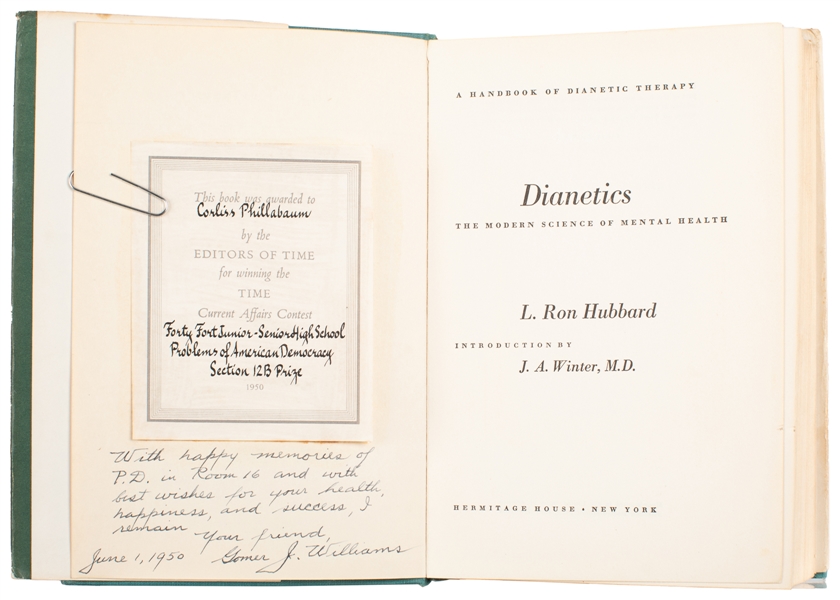 This book was awarded to
Corliss Phillabaum
by the
EDITORS OF TIME
for winning the
TIME
Current Affairs Contest
Forty Fort Junior-Senior High School
Problems of American Democracy
Section 12B Prize
1950
With happy memories of
P.D. in Room 16 and with
best wishes for your health,
happiness, and success, I
remain
Your friend,
June 1, 1950 Gomer J. Williams
A HANDBOOK OF DIANETIC THERAPY
Dianetics
THE MODERN SCIENCE OF MENTAL HEALTH
L. Ron Hubbard
INTRODUCTION BY
J. A. Winter, M.D.
HERMITAGE HOUSE • NEW YORK